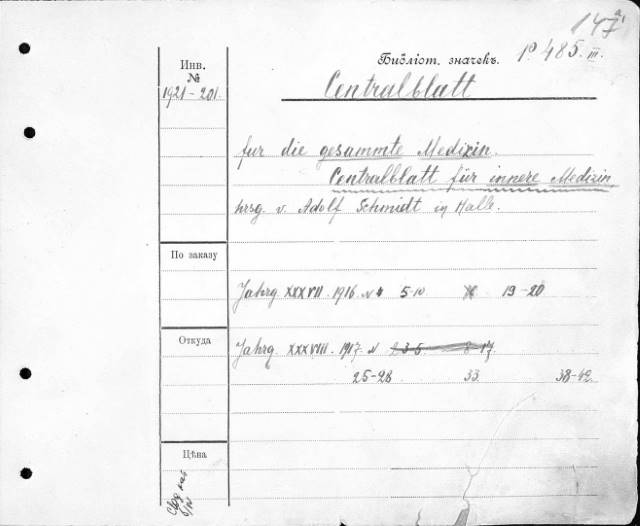 147 a.
Инв.
№
1921-201.
Библіот. значекъ. P. 485. III.
Centralblatt
fur die gesammte Medizin.
Centralblatt für innere Medizin
hrsg. v. Adolf Schmidt in Halle.
По заказу
Jahrg XXXVII. 1916. N 5-10 19-20
Откуда
Jahrg. XXXVIII. 1917. N 2 3-5. 8-17.
25-28 33. 38-42.
Цѣна